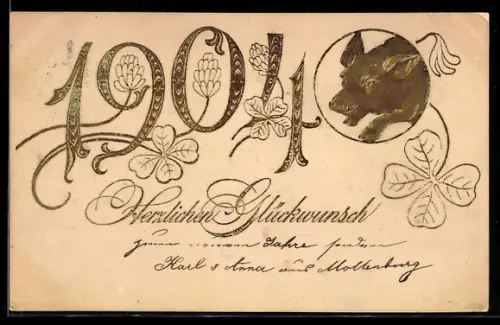 1904
Herzlichen Glückwunsch
zum neuen Jahre senden
Karl & Anna aus Moltenburg